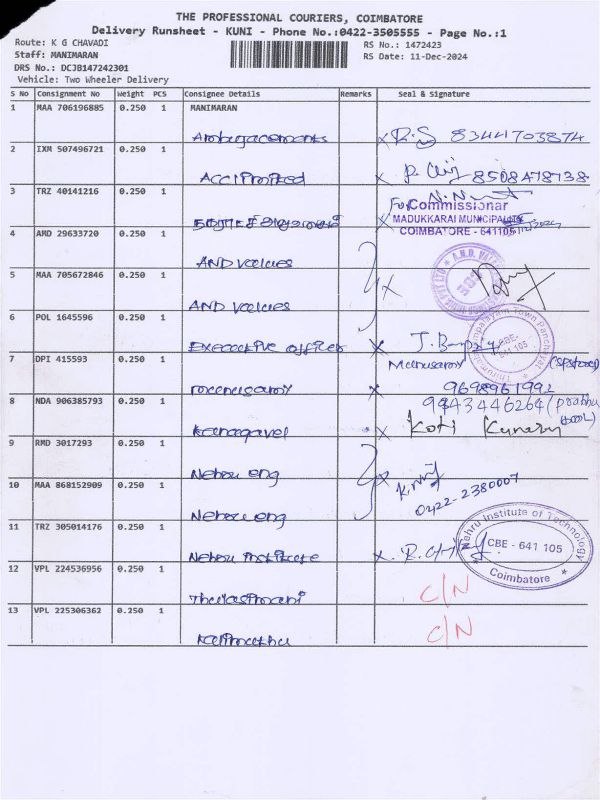 THE PROFESSIONAL COURIERS, COIMBATORE
Delivery Runsheet - KUNI - Phone No.:0422-3505555 - Page No.:1
Route: K G CHAVADI
RS No.: 1472423
Staff: MANIMARAN
RS Date: 11-Dec-2024
DRS No.: DCJB147242301
Vehicle: Two Wheeler Delivery
S No Consignment No Weight PCS Consignee Details Remarks Seal & Signature
1 MAA 706196885 0.250 1 MANIMARAN
R.S 8344703874
2 IXM 507496721 0.250 1
8508478738
3 TRZ 40141216 0.250 1
For Commissionar
MADUKKARAI MUNICIPALITY
COIMBATORE - 641105
4 AMD 29633720 0.250 1
AND values
5 MAA 705672846 0.250 1
AND values
6 POL 1645596 0.250 1
Executive officer
CBE-
641 105
7 DPI 415593 0.250 1
9698961992
8 NDA 906385793 0.250 1
9843446264
Kanagavel
Koti
9 RMD 3017293 0.250 1
Nehru eng
10 MAA 868152909 0.250 1
0422-2380007
Nehru eng
11 TRZ 305014176 0.250 1
Nehru Institute
Nehru Institute of Technology
CBE - 641 105
Coimbatore
12 VPL 224536956 0.250 1
C/N
Thulasimani
13 VPL 225306362 0.250 1
C/N
Kalimuthu